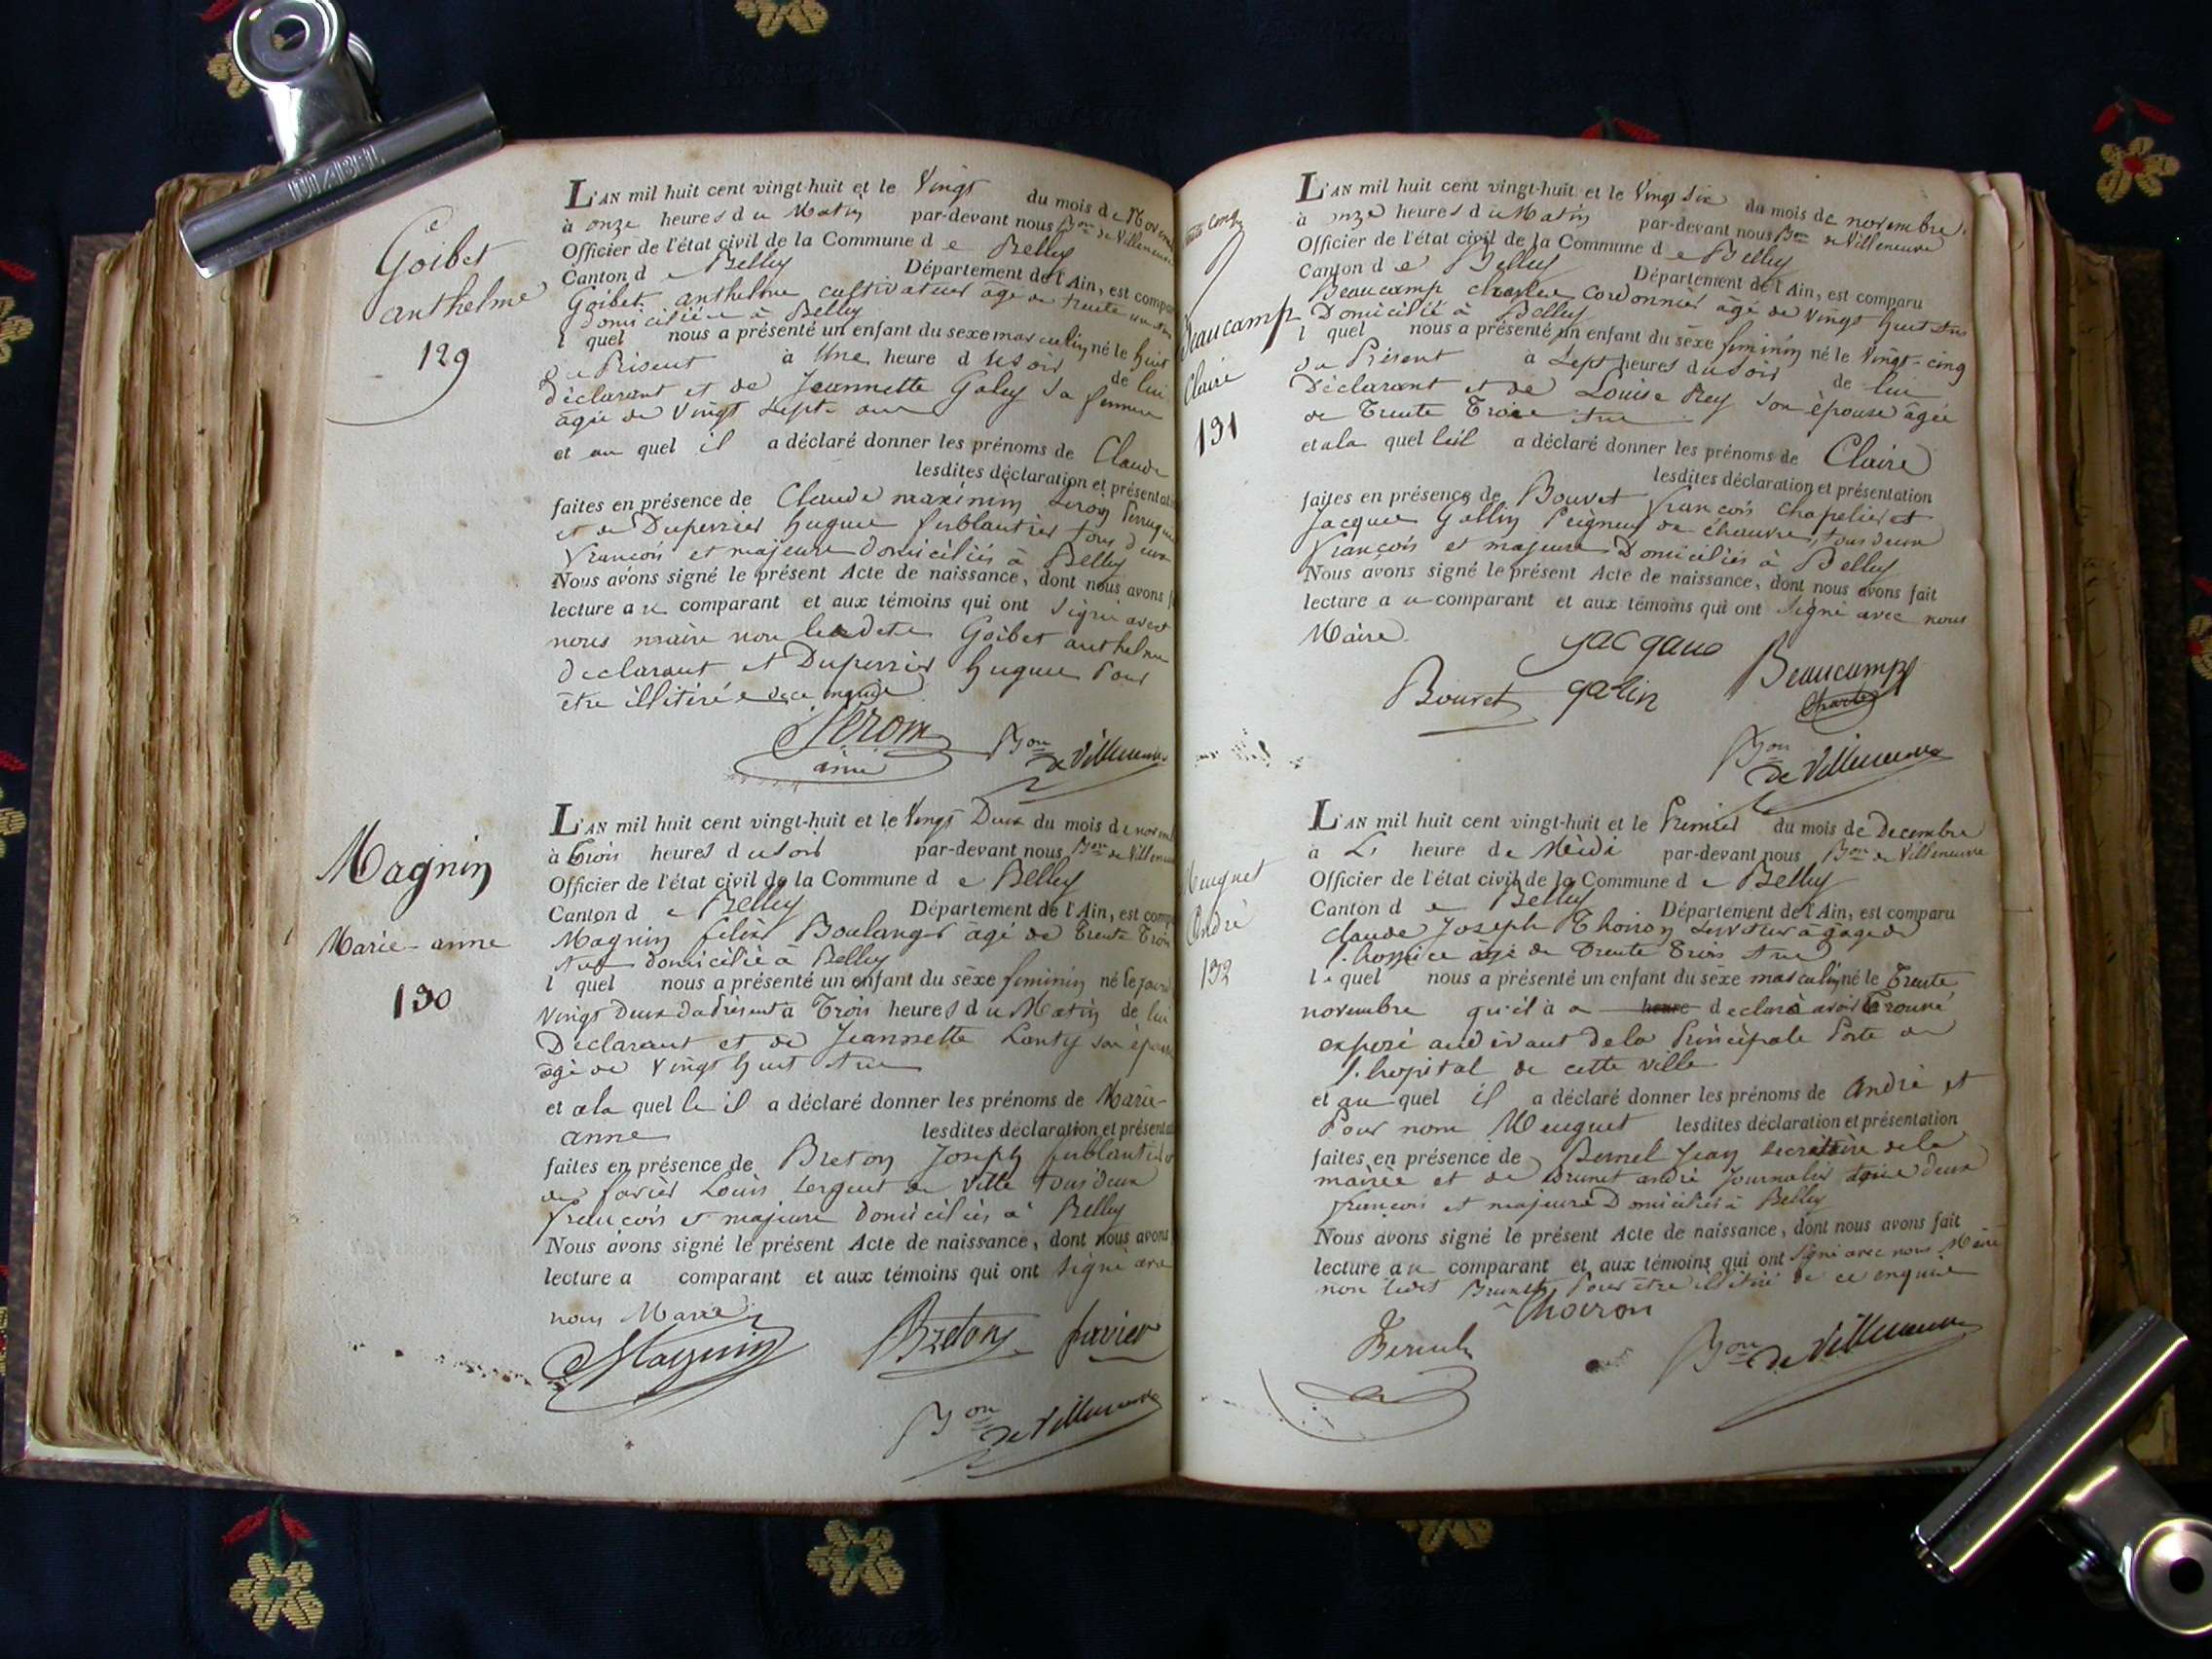 DIABEL
Goibet
anthelme
129
L'AN mil huit cent vingt-huit et le Vingt du mois de
à onze heures du Matin par-devant nous Bon de Villeneuve
Officier de l'état civil de la Commune de Belley
Canton de Belley Département de l'Ain, est
Goibet anthelme cultivateur âgé de trente un ans
domicilié à Belley
l quel nous a présenté un enfant du sexe masculin né le huit
du Présent à Une heure du soir de lui
déclarant et de Jeannette Galey sa femme
âgée de Vingt Sept ans
et au quel il a déclaré donner les prénoms de Claude
lesdites déclaration et
faites en présence de Claude maximin
et de Duperrier hugue ferblantier tous deux
françois et majeurs domiciliés à Belley
Nous avons signé le présent Acte de naissance, dont nous avons
lecture au comparant et aux témoins qui ont Signé avec
nous maire non Goibet anthelme
declarant et Duperrier hugue Pour
être illitéré de ce enquis
ainé
Bon de Villeneuve
Magnin
Marie-anne
130
L'AN mil huit cent vingt-huit et le Vingt Deux du mois de
à trois heures du soir par-devant nous Bon de
Officier de l'état civil de la Commune de Belley
Canton de Belley Département de l'Ain, est
Magnin felix Boulanger âgé de trente trois
ans domicilié à Belley
l quel nous a présenté un enfant du sexe feminin né le
vingt deux du présent à Trois heures du Matin de lui
Déclarant et de Jeannette Lanty son épouse
âgée de Vingt huit ans
et à la quelle il a déclaré donner les prénoms de Marie-
anne lesdites déclaration et
faites en présence de Breton Joseph ferblantier
de favier Louis Sergent de Ville tous deux
françois et majeurs domiciliés à Belley
Nous avons signé le présent Acte de naissance, dont nous avons
lecture a comparant et aux témoins qui ont Signé avec
nous Maire
Magnin Breton favier
Bon de Villeneuve
Beaucamp
Claire
131
L'AN mil huit cent vingt-huit et le Vingt Six du mois de novembre
à onze heures du Matin par-devant nous Bon de Villeneuve
Officier de l'état civil de la Commune de Belley
Canton de Belley Département de l'Ain, est comparu
Beaucamp charles Cordonnier âgé de Vingt huit ans
Domicilié à Belley
l quel nous a présenté un enfant du sexe feminin né le Vingt-cinq
du Présent à Sept heures du soir de lui
Déclarant et de Louise Rey son épouse âgée
de Trente Trois ans
et à la quelle il a déclaré donner les prénoms de Claire
lesdites déclaration et présentation
faites en présence de Bouvet françois chapelier et
Jacques Gallin Peigneur de chanvre, tous deux
françois et majeurs Domiciliés à Belley
Nous avons signé le présent Acte de naissance, dont nous avons fait
lecture au comparant et aux témoins qui ont Signé avec nous
Maire.
Beaucamp
Bouvet galin Charles
Bon de Villeneuve
Muguet
André
132
L'AN mil huit cent vingt-huit et le Premier du mois de Decembre
à L' heure de Midi par-devant nous Bon de Villeneuve
Officier de l'état civil de la Commune de Belley
Canton de Belley Département de l'Ain, est comparu
Claude Joseph Thoiron Serviteur à gage de
l'hospice âgé de Trente Trois ans
le quel nous a présenté un enfant du sexe masculin né le Trente
novembre qu'il a heure declaré avoir Trouvé
exposé au devant de la Principale Porte de
l'hopital de cette ville
et au quel il a déclaré donner les prénoms de André et
Pour nom Muguet lesdites déclaration et présentation
faites en présence de Bernel Jean Secretaire de la
mairie et de Brunet andré Journalier tous deux
françois et majeurs Domiciliés à Belley
Nous avons signé le présent Acte de naissance, dont nous avons fait
lecture au comparant et aux témoins qui ont Signé avec nous Maire
non ledit Brunet Pour être illitéré de ce enquis
Thoiron
Bernel Bon de Villeneuve